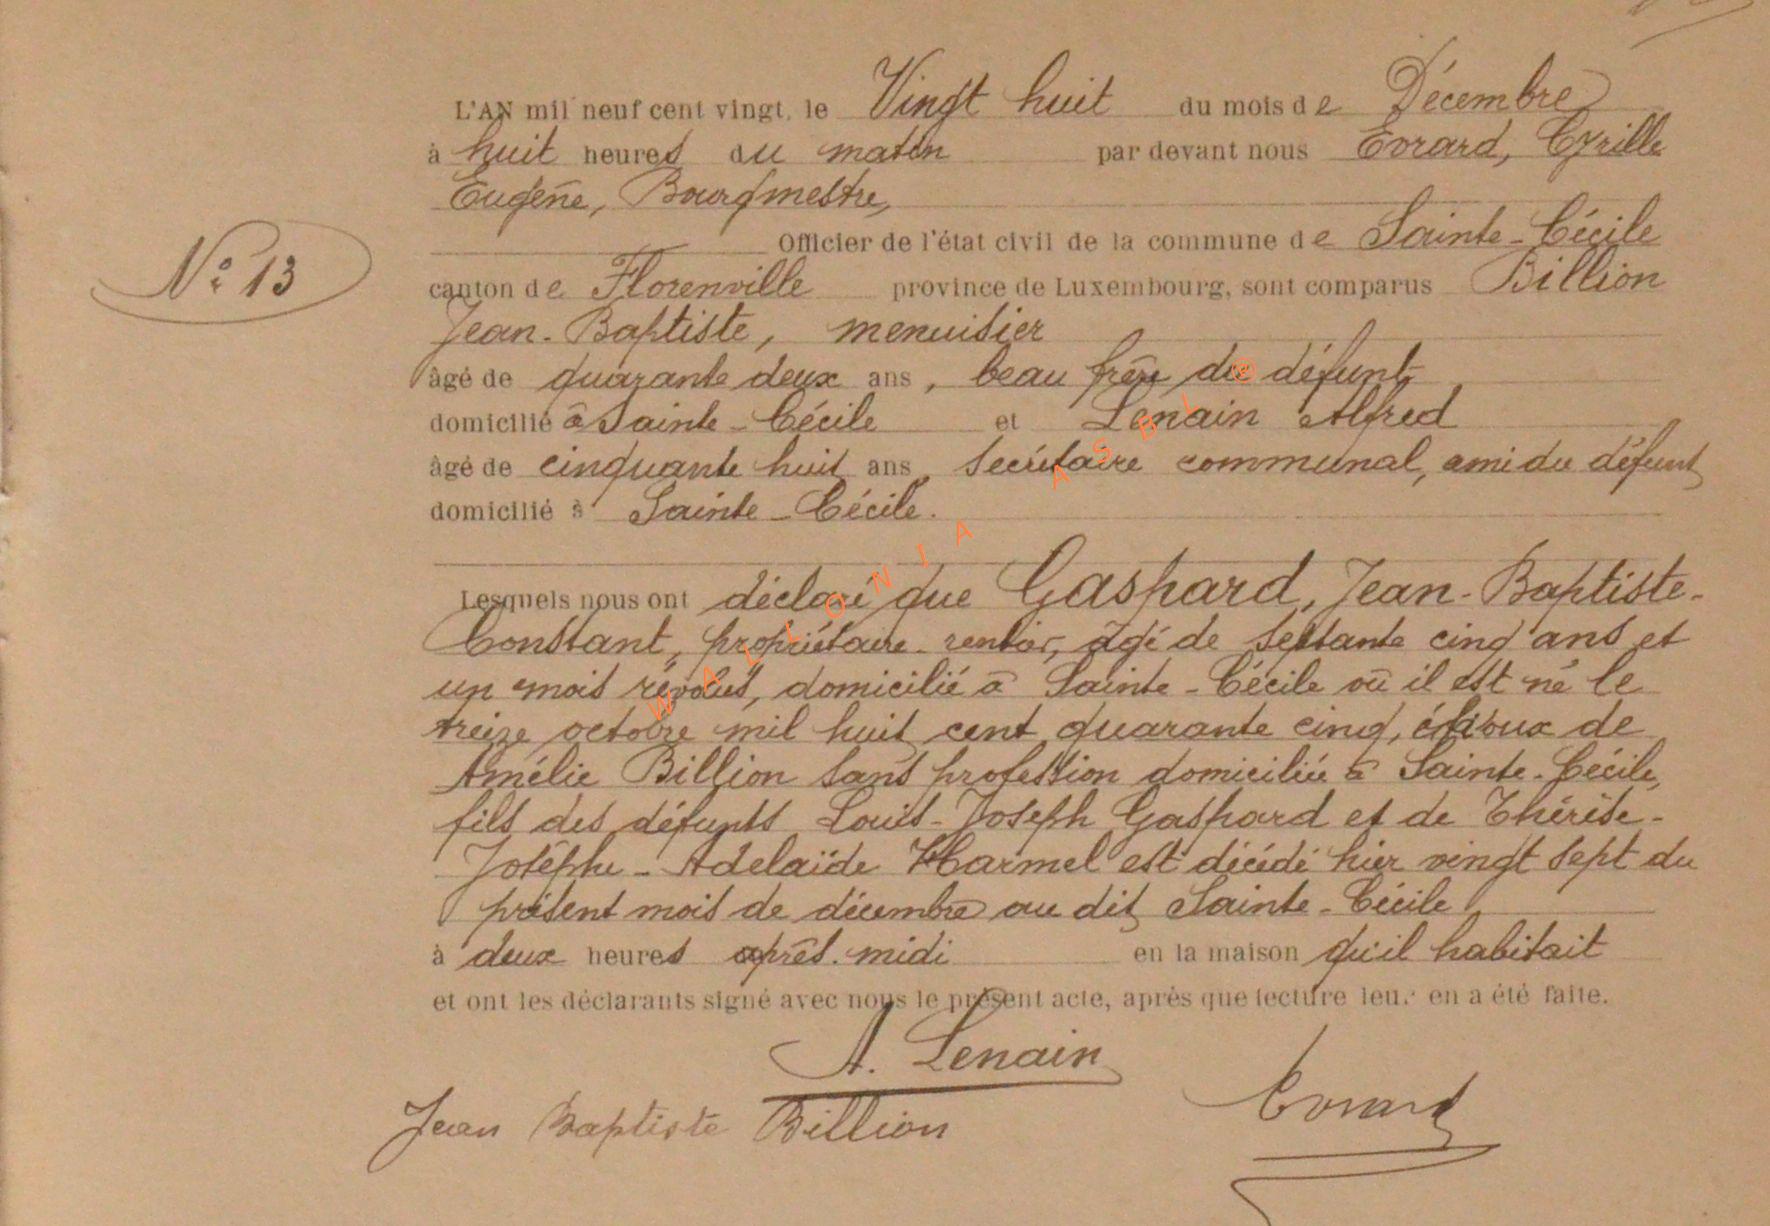 L'AN mil neuf cent vingt, le Vingt huit du mois de Décembre
à huit heures du matin par devant nous Evrard, Cyrille
Eugène, Bourgmestre,
Officier de l'état civil de la commune de Sainte-Cécile
N° 13
canton de Florenville province de Luxembourg, sont comparus Billion
Jean-Baptiste, menuisier
âgé de quarante deux ans, beau frère du défunt
domicilié à Sainte-Cécile et Lenain Alfred
âgé de cinquante huit ans, secrétaire communal, ami du défunt
domicilié à Sainte-Cécile.
Lesquels nous ont déclaré que Gaspard, Jean-Baptiste-
Constant, propriétaire-rentier, âgé de septante cinq ans et
un mois révolus, domicilié à Sainte-Cécile où il est né le
treize octobre mil huit cent quarante cinq, époux de
Amélie Billion sans profession domiciliée à Sainte-Cécile,
fils des défunts Louis-Joseph Gaspard et de Thérèse-
Josèphe-Adelaïde Harmel est décédé hier vingt sept du
présent mois de décembre au dit Sainte-Cécile
à deux heures après-midi en la maison qu'il habitait
et ont les déclarants signé avec nous le présent acte, après que lecture leur en a été faite.
A. Lenain
Jean Baptiste Billion Evrard
WALLONIA ASBL ©